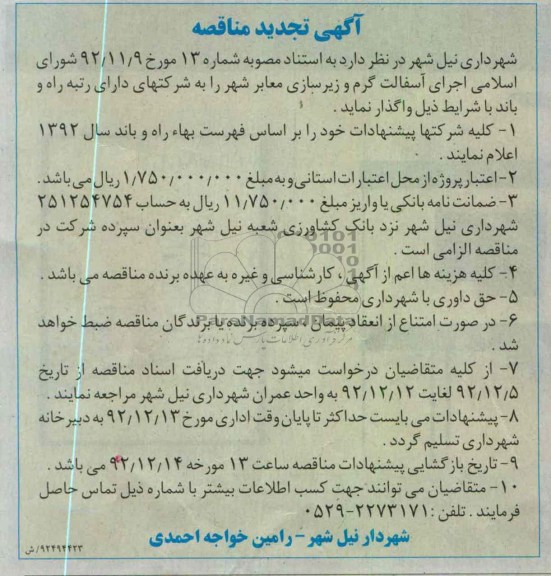 آگهی تجدید مناقصه
شهرداری نیل شهر در نظر دارد به استناد مصوبه شماره ۱۳ مورخ ۹۲/۱۱/۹ شورای
اسلامی اجرای آسفالت گرم و زیرسازی معابر شهر را به شرکتهای دارای رتبه راه و
باند با شرایط ذیل واگذار نماید .
۱- کلیه شرکتها پیشنهادات خود را بر اساس فهرست بهاء راه و باند سال ۱۳۹۲
اعلام نمایند .
۲- اعتبار پروژه از محل اعتبارات استانی و به مبلغ ۱/۷۵۰/۰۰۰/۰۰۰ ریال می باشد .
۳- ضمانت نامه بانکی یا واریز مبلغ ۱۱/۷۵۰/۰۰۰ ریال به حساب ۲۵۱۲۵۴۷۵۴
شهرداری نیل شهر نزد بانک کشاورزی شعبه نیل شهر بعنوان سپرده شرکت در
مناقصه الزامی است .
۴- کلیه هزینه ها اعم از آگهی ، کارشناسی و غیره به عهده برنده مناقصه می باشد .
۵- حق داوری با شهرداری محفوظ است .
ParsNamadData
۶- در صورت امتناع از انعقاد پیمان ، سپرده برنده یا برندگان مناقصه ضبط خواهد
شد .
۷- از کلیه متقاضیان درخواست میشود جهت دریافت اسناد مناقصه از تاریخ
۹۲/۱۲/۵ لغایت ۹۲/۱۲/۱۲ به واحد عمران شهرداری نیل شهر مراجعه نمایند .
۸- پیشنهادات می بایست حداکثر تا پایان وقت اداری مورخ ۹۲/۱۲/۱۳ به دبیرخانه
شهرداری تسلیم گردد .
۹- تاریخ بازگشایی پیشنهادات مناقصه ساعت ۱۳ مورخه ۹۲/۱۲/۱۴ می باشد .
۱۰- متقاضیان می توانند جهت کسب اطلاعات بیشتر با شماره ذیل تماس حاصل
فرمایند . تلفن : ۲۲۷۳۱۷۱-۰۵۲۹
شهردار نیل شهر - رامین خواجه احمدی
۹۲۴۹۴۴۲۳/ش